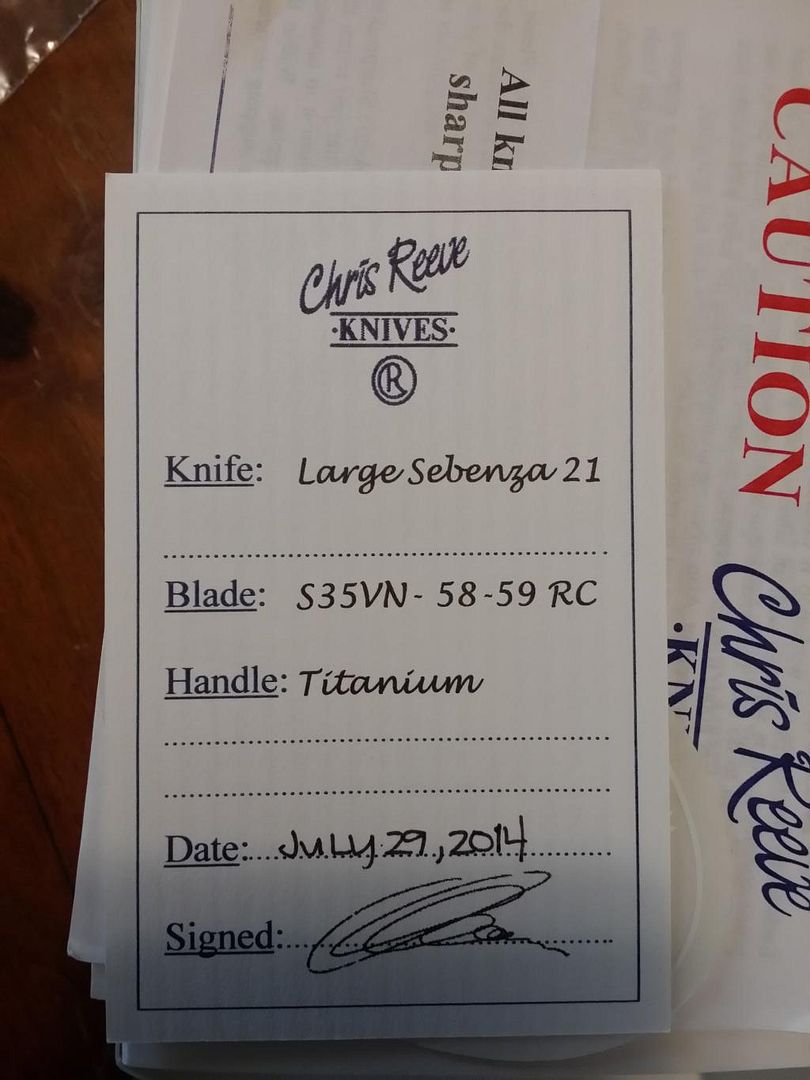 All kn
sharp
CAUTION
Chris Reeve
·KNIVES·
®
Knife: Large Sebenza 21
Blade: S35VN - 58-59 RC
Handle: Titanium
Date: JULY 29, 2014
Signed:
Chris Reeve
·KN